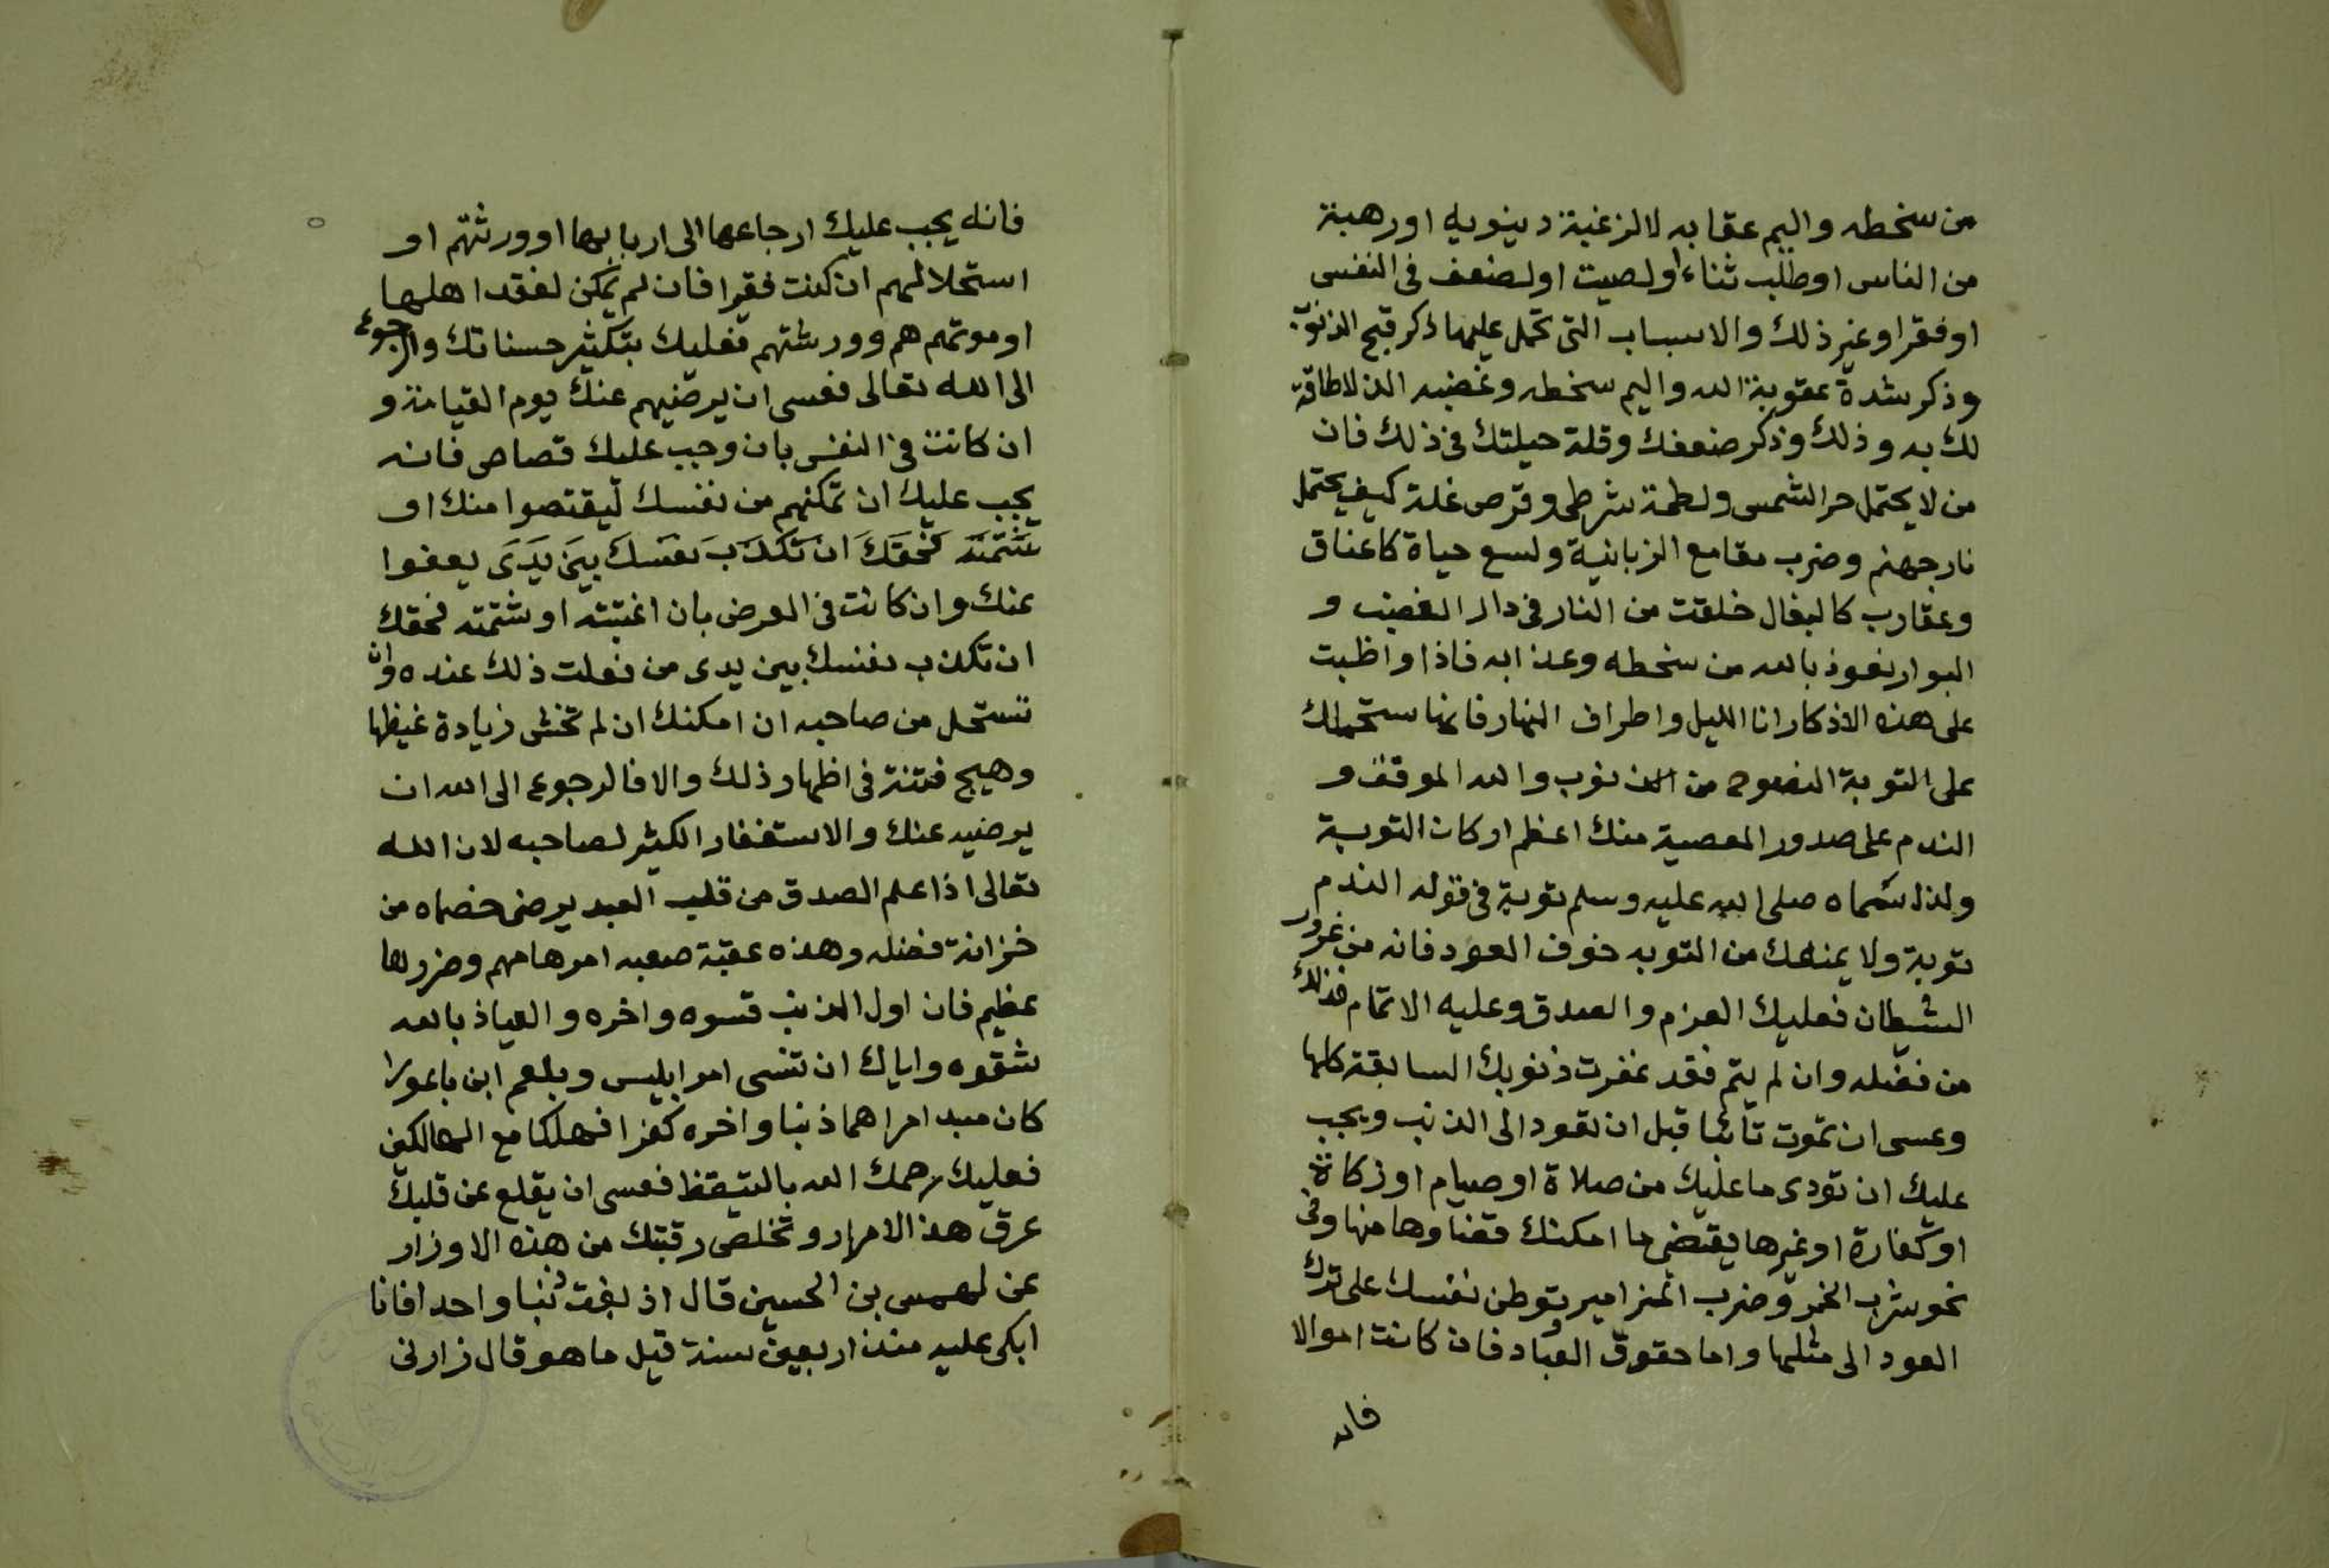 من سخطه واليم عقابه لا لرغبة دينويه او رهبة
من الناس او طلب ثناء او لصيت او لضعف فى النفس
او فقر او غير ذلك والاسباب التى تحمل عليها ذكر قبح الذنوب
وذكر شدة عقوبة الله واليم سخطه وغضبه الذ لا طاقة
لك به وذلك وذكر ضعفك وقلة حيلتك فى ذلك فان
من لا يحتمل حر الشمس ولطمة شرطى وقرص غلة كيف يحتمل
نار جهنم وضرب مقامع الزبانية ولسع حياة كاعناق
وعقارب كالبغال خلقت من النار فى دار الغضب و
البوار نعوذ بالله من سخطه وعذابه فاذا واظبت
على هذه الاذكار انا الليل واطراف النهار فانها ستحملك
على التوبة النصوح من الذنوب والله الموفق و
الندم على صدور المعصية منك اعظم اركان التوبة
ولذا سماه صلى الله عليه وسلم توبة فى قوله الندم
توبة ولا يمنعك من التوبه خوف العود فانه من غرور
الشيطان فعليك العزم والصدق وعليه الاتمام فذلك
من فضله وان لم يتم فقد غفرت ذنوبك السابقة كلها
وعسى ان تموت تائبا قبل ان تعود الى الذنب ويجب
عليك ان تودى ما عليك من صلاة او صيام او زكاة
او كفارة او غيرها يقتضى ما امكنك قضاوها منها وفى
نحو شرب الخمر وضرب المزامير توطن نفسك على ترك
العود الى مثلها واما حقوق العباد فان كانت اموالا
فانه
فانه يجب عليك ارجاعها الى اربابها او ورثتهم او
استحلالهم ان كنت فقيرا فان لم يمكن لفقد اهلها
او موتهم هم وورثتهم فعليك بتكثير حسناتك والرجوع
الى الله تعالى فعسى ان يرضيهم عنك يوم القيامة و
ان كانت فى النفس بان وجب عليك قصاص فانه
يجب عليك ان تمكنهم من نفسك ليقتصوا منك او
شتمته فحقك ان تكذب نفسك بين يدى يعفوا
عنك وان كانت فى العرض بان اغتبته او شتمته فحقك
ان تكذب نفسك بين يدى من فعلت ذلك عنده وان
تستحل من صاحبه ان امكنك ان لم تخش زيادة غيظها
وهيج فتنة فى اظهار ذلك والا فالرجوع الى الله ان
يرضيه عنك والاستغفار الكثير لصاحبه لان الله
تعالى اذا علم الصدق من قلب العبد يرضى خصماه من
خزانة فضله وهذه عقبة صعبه امرها مهم وضررها
عظيم فان اول الذنب قسوه واخره والعياذ بالله
شقوه واياك ان تنسى امر ابليس وبلعم ابن باعورا
كان مبد امراهما ذنبا واخره كفرا فهلكا مع الهالكين
فعليك رحمك الله بالتيقظ فعسى ان يقلع عن قلبك
عرق هذا الامرار وتخلص رقبتك من هذه الاوزار
عن لهمس بن الحسين قال اذ نبت ذنبا واحد افانا
ابكى عليه منذ اربعين سنة قيل ما هو قال زارنى